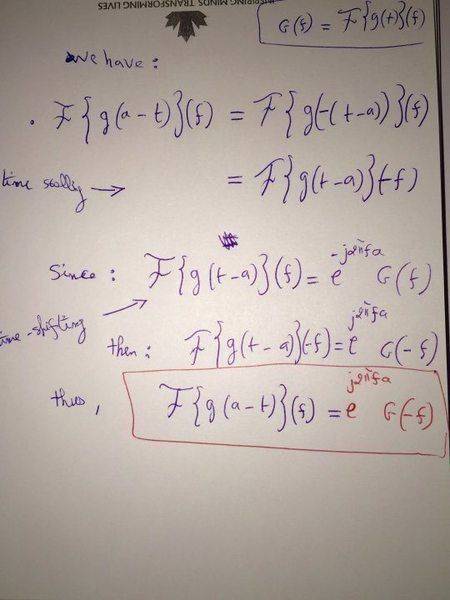 INSPIRING MINDS TRANSFORMING LIVES
G(f) = F{g(t)}(f)
we have:
. F{g(a-t)}(f) = F{g(-(t-a))}(f)
time scally → = F{g(t-a)}(-f)
Since: F{g(t-a)}(f) = e^{-j2πfa} G(f)
time-shifting
then: F{g(t-a)}(-f) = e^{j2πfa} G(-f)
thus, F{g(a-t)}(f) = e^{j2πfa} G(-f)